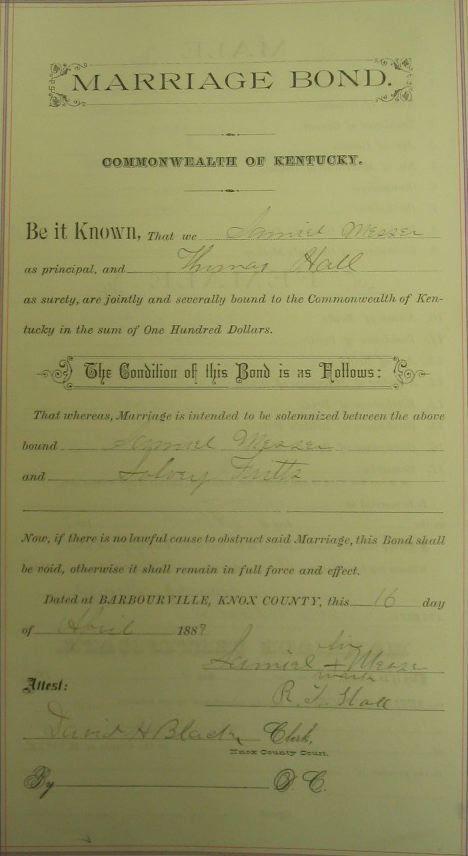 MARRIAGE BOND.
COMMONWEALTH OF KENTUCKY.
Be it Known, That we Samuel Messer
as principal, and Thomas Hall
as surety, are jointly and severally bound to the Commonwealth of Ken-
tucky in the sum of One Hundred Dollars.
The Condition of this Bond is as Follows:
That whereas, Marriage is intended to be solemnized between the above
bound Samuel Messer
and
Now, if there is no lawful cause to obstruct said Marriage, this Bond shall
be void, otherwise it shall remain in full force and effect.
Dated at BARBOURVILLE, KNOX COUNTY, this 16 day
of April 1889
his
Samuel + Messer
mark
Attest:
Hall
David H Black Clerk,
Knox County Court.
By D. C.